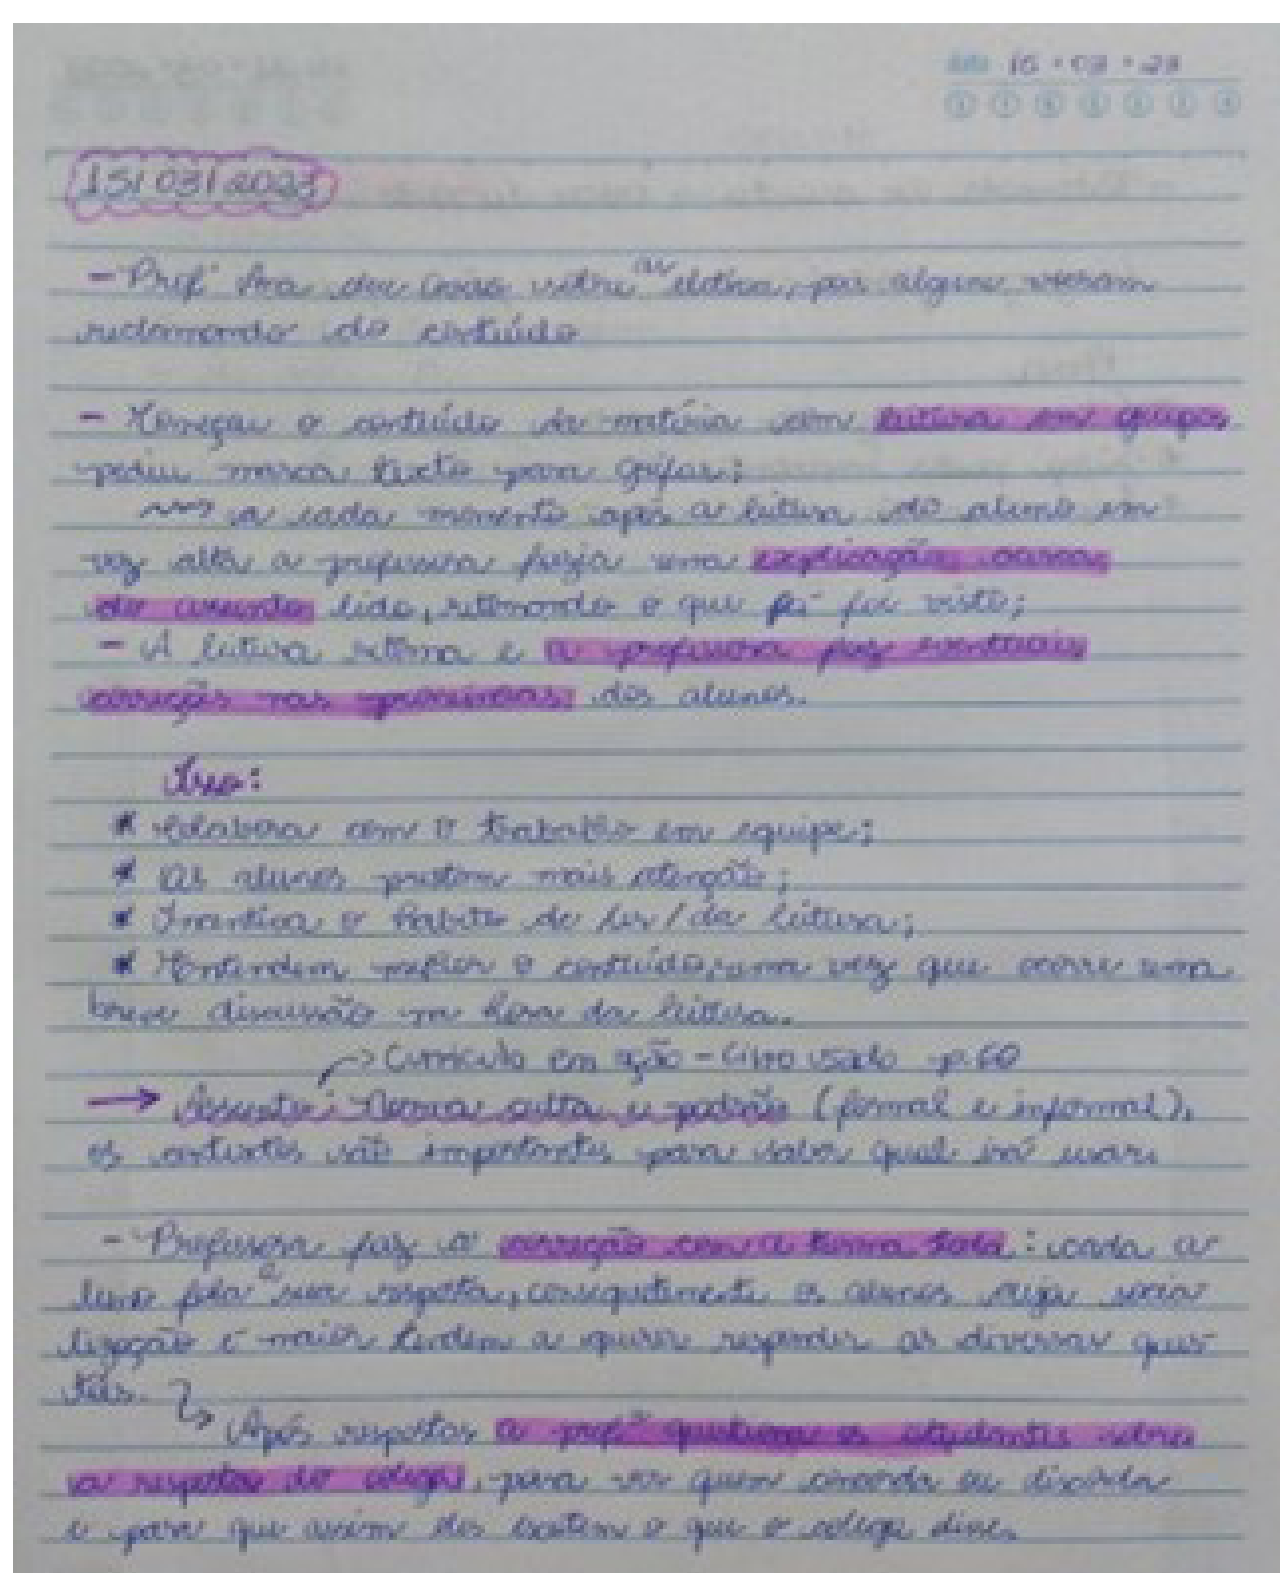 15 • 03 • 23
15/03/2023
- Profª Ana deu aviso sobre as eletiva, pois alguns vieram
reclamando do conteúdo
- Começou o conteúdo da matéria com leitura em grupos
pediu marca texto para grifar;
a cada momento após a leitura do aluno em
voz alta a professora fazia uma explicação acerca
do assunto lido, retomando o que já foi visto;
- A leitura retoma e a professora faz eventuais
correções nas pronúncias dos alunos.
Isso:
* Colabora com o trabalho em equipe;
* Os alunos prestam mais atenção;
* Incentiva o hábito de ler/da leitura;
* Entendem melhor o conteúdo, uma vez que ocorre uma
breve discussão na hora da leitura.
-> Currículo em ação - Livro usado p.60
→ Assunto: Norma culta e padrão (formal e informal),
os contextos são importantes para saber qual irá usar.
- Professora faz a correção com a turma toda: cada a
luno fala a sua resposta, consequetimente os alunos cuja socia
lização é maior tendem a querer responder as diversas ques
tões.
Após respostas a profª questiona os estudantes sobre
a resposta do colega, para ver quem concorda ou discorda
e para que assim eles escutem o que o colega disse.